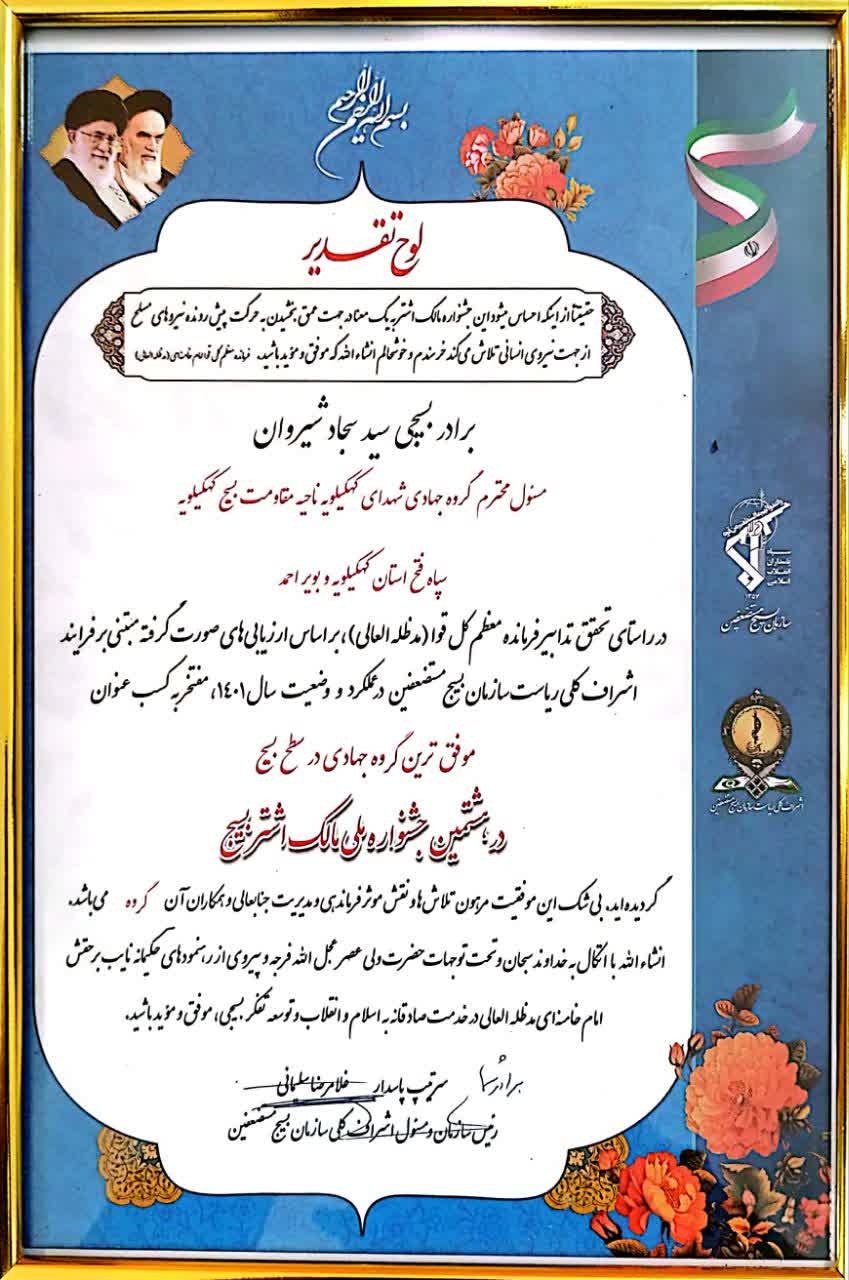 بسم الله الرحمن الرحیم
لوح تقدیر
حقیقتاً از اینکه احساس میشود این جشنواره مالک اشتر به یک معنا در جهت عمق بخشیدن به حرکت پیش رونده نیروهای مسلح
از جهت نیروی انسانی تلاش می‌کند خرسندم و خوشحالم انشاء الله که موفق و مؤید باشید. فرمانده معظم کل قوا امام خامنه‌ای (مدظله العالی)
برادر بسیجی سید سجاد شیروان
مسئول محترم گروه جهادی شهدای کهگیلویه ناحیه مقاومت بسیج کهگیلویه
سپاه فتح استان کهگیلویه و بویر احمد
در راستای تحقق تدابیر فرمانده معظم کل قوا (مدظله العالی)، بر اساس ارزیابی‌های صورت گرفته مبتنی بر فرایند
اشراف کلی ریاست سازمان بسیج مستضعفین در عملکرد و وضعیت سال ۱۴۰۱، مفتخر به کسب عنوان
موفق ترین گروه جهادی در سطح بسیج
در هشتمین جشنواره ملی مالک اشتر بسیج
گردیده‌اید. بی شک این موفقیت مرهون تلاش ها و نقش موثر فرماندهی و مدیریت جنابعالی و همکاران آن گروه می‌باشد.
انشاء الله با اتکال به خداوند سبحان و تحت توجهات حضرت ولی عصر عجل الله فرجه و پیروی از رهنمودهای حکیمانه نایب برحقش
امام خامنه‌ای مدظله العالی در خدمت صادقانه به اسلام و انقلاب و توسعه تفکر بسیجی، موفق و مؤید باشید.
برادر شما
سرتیپ پاسدار غلامرضا سلیمانی
رئیس سازمان و مسئول اشراف کلی سازمان بسیج مستضعفین
سپاه
پاسداران
انقلاب
اسلامی
۱۳۵۷
سازمان بسیج مستضعفین
اشراف کلی ریاست سازمان بسیج مستضعفین